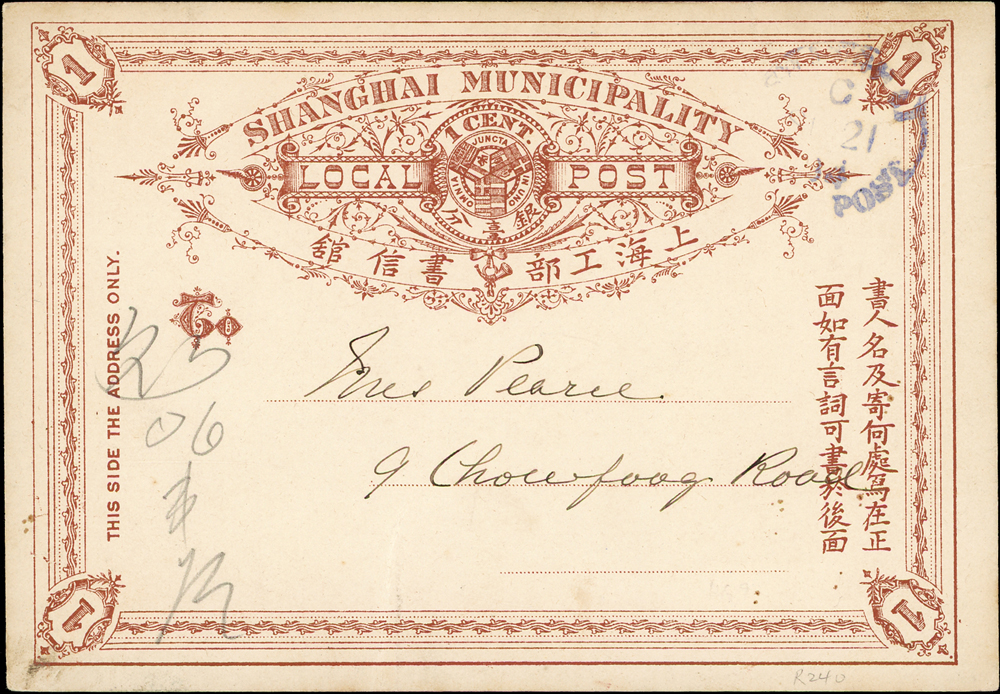 1
1
SHANGHAI MUNICIPALITY
1 CENT.
JUNCTA IN UNO OMNIA
LOCAL POST
銀壹分
上海工部書信館
21
POST
THIS SIDE THE ADDRESS ONLY.
To
書人名及寄何處寫在正
面如有言詞可書於後面
Mrs Pearce.
9 Chowfoong Road
06
1
1
R240